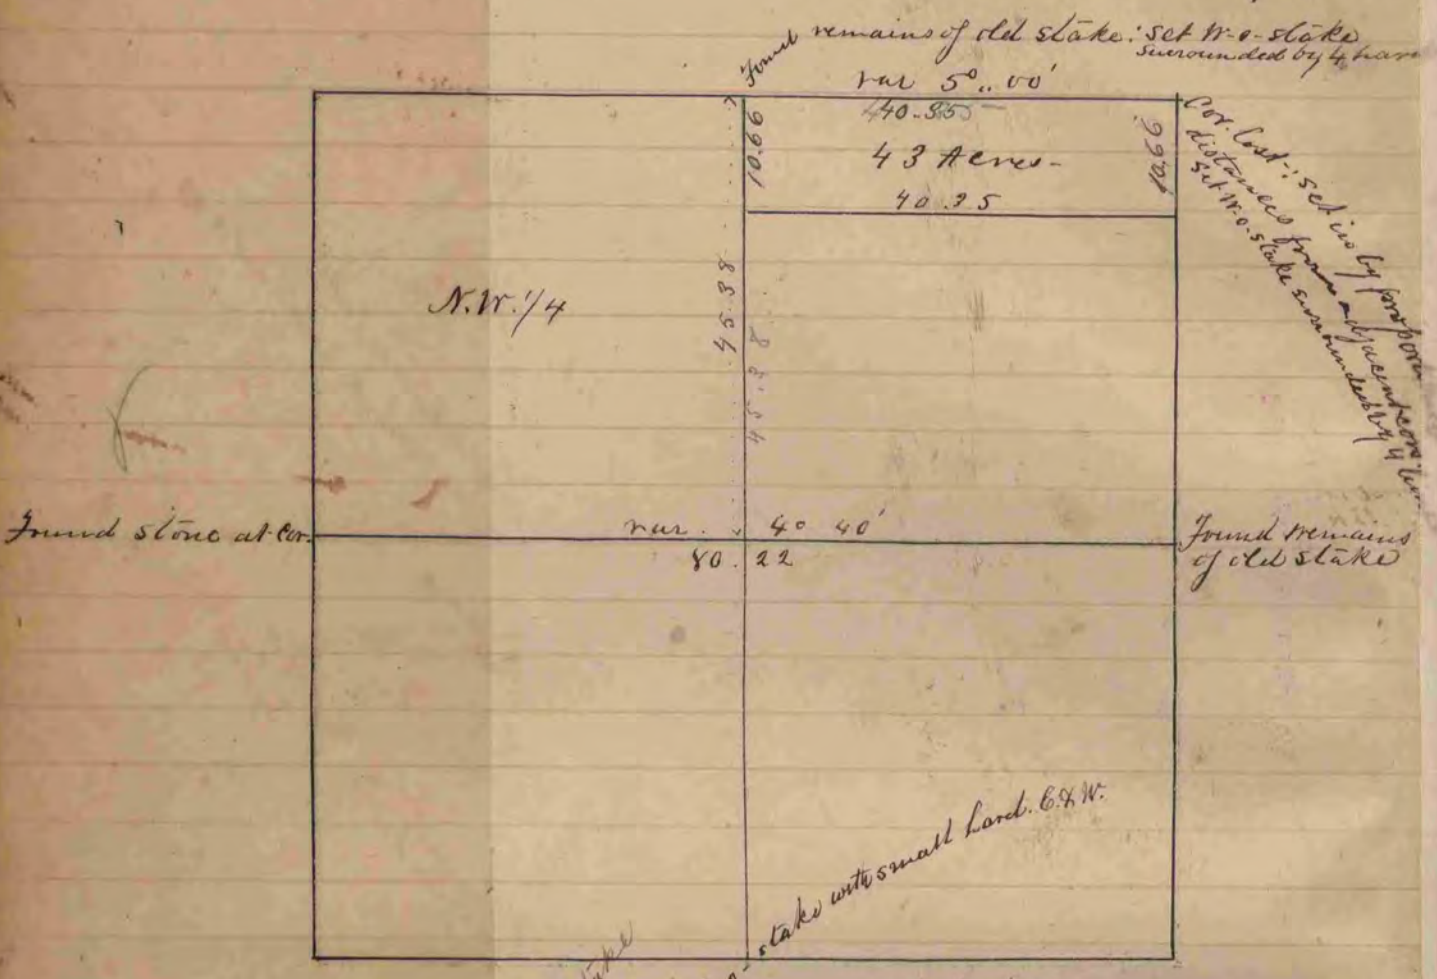 Found remains of old stake: set W-o-stake
surrounded by 4
var 5°..00'
40.35
10.66
43 Acres-
10.66
40.35
Cor. Lost-: set in by
distances from adjacent cors.
Set W-o-stake surrounded by 4
N.W. 1/4
45.38
45.38
Found stone at cor.
var. 4° 40'
Found remains
of old stake
80.22
stake with small hard. E.&W.